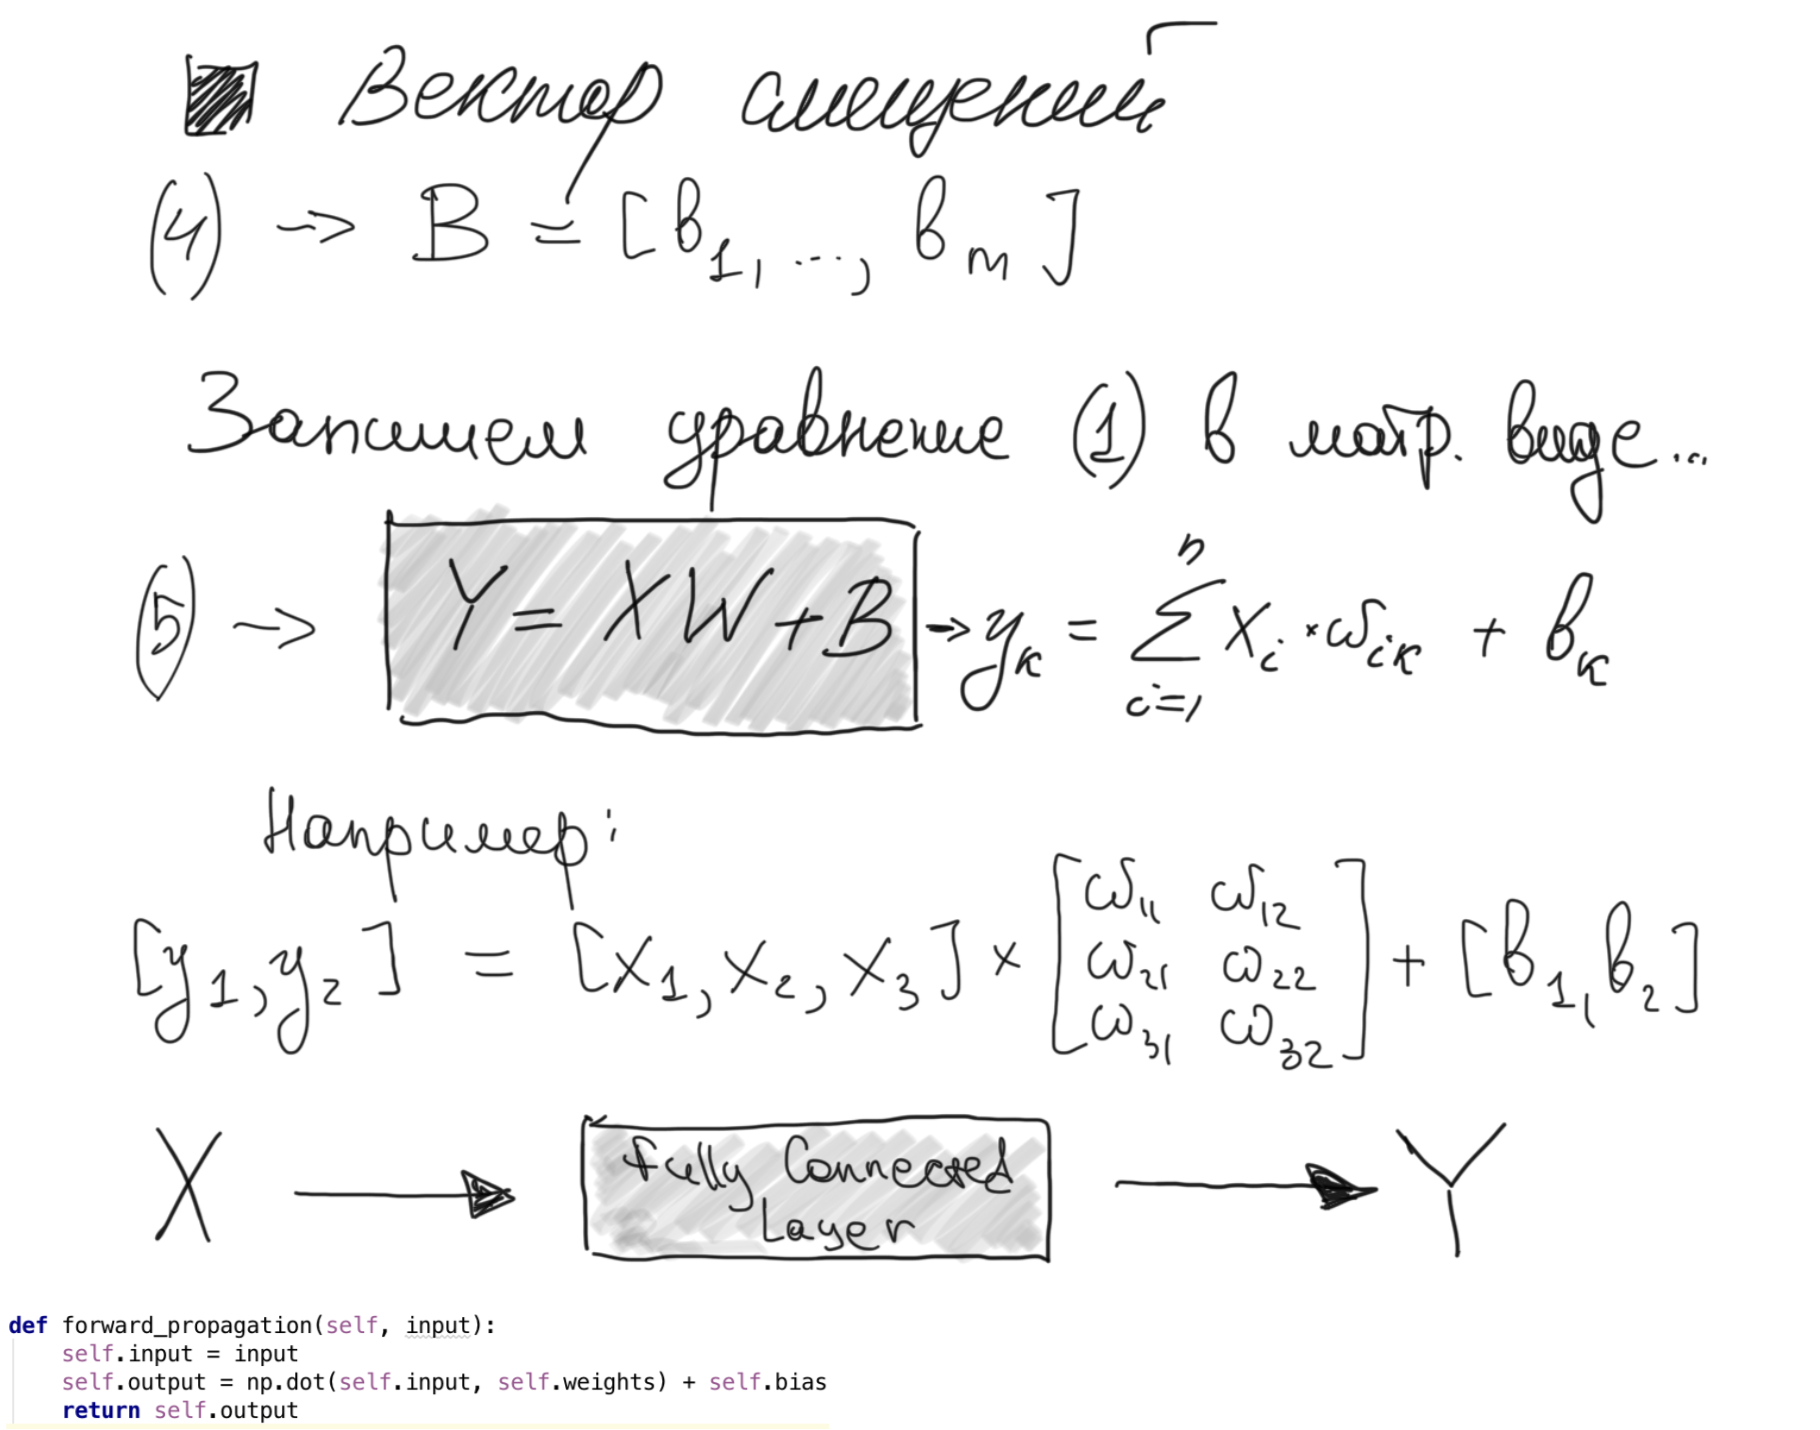 Вектор смещений
(4) -> B = [b₁, ..., bₘ]
Запишем уравнение (1) в матр. виде...
(5) -> Y = XW + B -> yₖ = ∑ᵢ₌₁ⁿ xᵢ · ωᵢₖ + bₖ
Например:
[y₁, y₂] = [x₁, x₂, x₃] × [ω₁₁ ω₁₂
ω₂₁ ω₂₂
ω₃₁ ω₃₂] + [b₁, b₂]
X -> Fully Connected Layer -> Y
def forward_propagation(self, input):
    self.input = input
    self.output = np.dot(self.input, self.weights) + self.bias
    return self.output